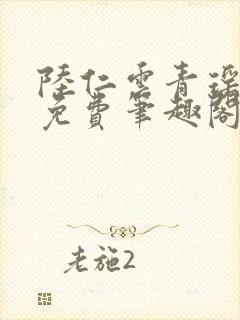 陸仁雲青瑶
免費筆趣閣
老施2